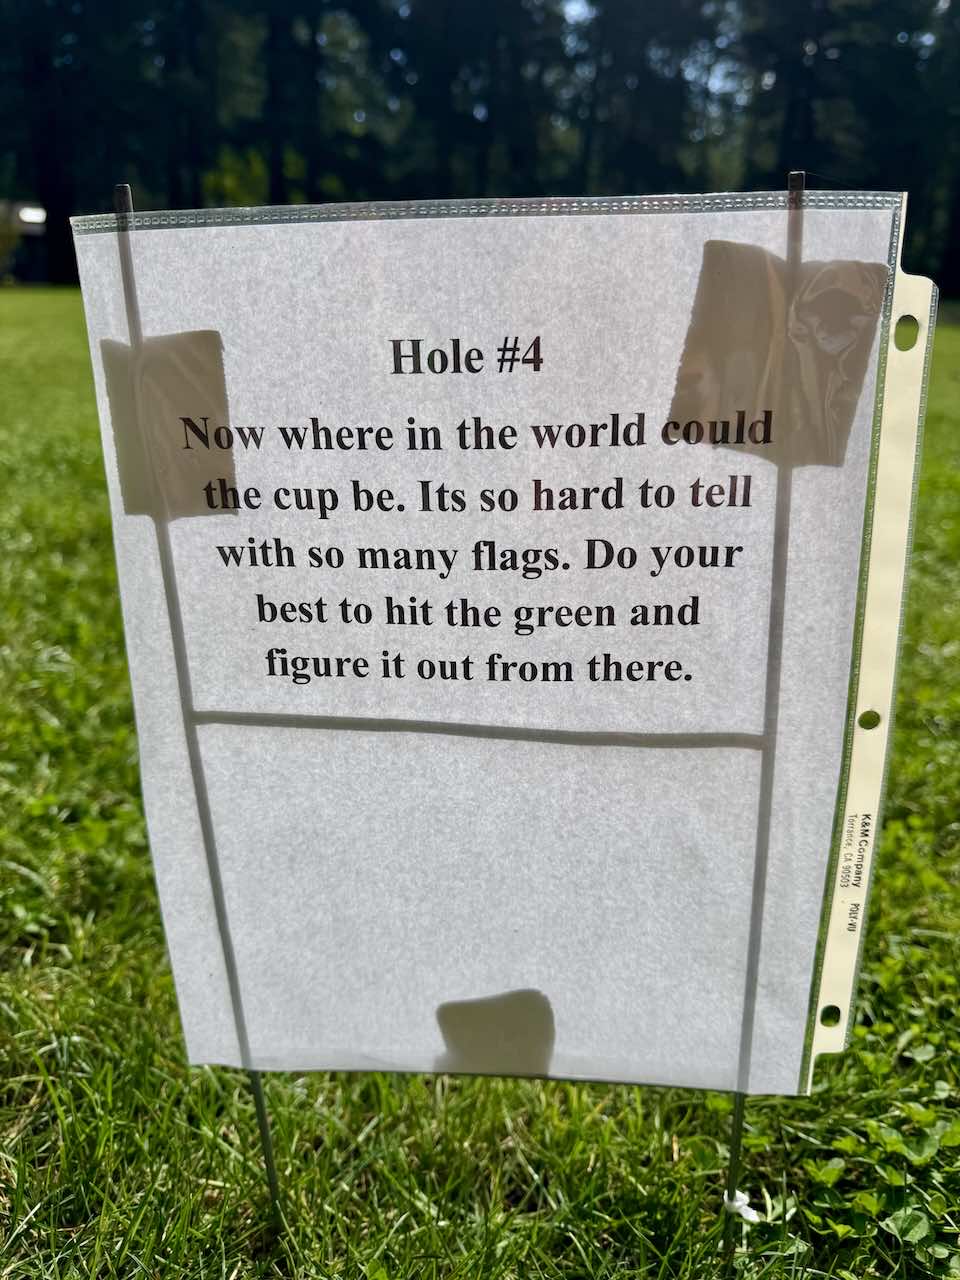 Hole #4
Now where in the world could
the cup be. Its so hard to tell
with so many flags. Do your
best to hit the green and
figure it out from there.
K&M Company POLY-VU
Torrance, CA 90503